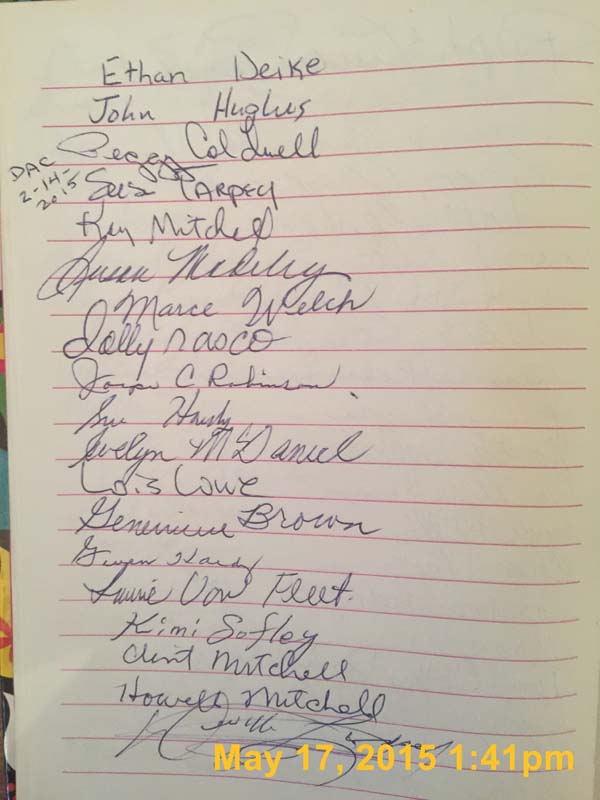 Ethan Deike
John Hughes
Peggy Caldwell
DAC
2-14-
2015
Sus TARPEY
Kay Mitchell
Susan
Marce Welch
Dolly Nasco
C. Robinson
Sue Hardy
Evelyn McDaniel
Lois Lowe
Genevieve Brown
Gwen Hardy
Laurie Von Fleet
Kimi Sofley
Clint Mitchell
Howell Mitchell
May 17, 2015 1:41pm